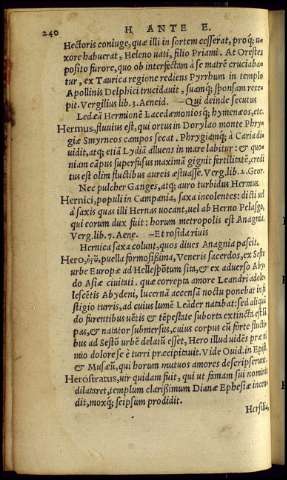 240 H ANTE E.
Hectoris coniuge, quæ illi in sortem cesserat, pro uxore habuerat, Heleno vati, filio Priami. At Orestes
posito furore, quo ob interfectam à se matrē cruciabatur, ex Taurica regione rediens Pyrrhum in templo
Apollinis Delphici trucidavit, suamq; sponsam recepit. Vergilius lib. 3. Aeneid. —Qui deinde secutus
Ledæā Hermionē Lacedæmoniosq; hymenæos, etc.
Hermus, fluvius est, qui ortus in Dorylao monte Phrygiæ Smyrneos campos secat. Phrygiamq; à Caria dividit, atq; etiā Lydiā
alluens in mare labitur: & quoniam cāpus superfusus maximā gignit fertilitatē, creditus est olim fluctibus aureis æstuasse. Verg. lib. 2. Geor.
Nec pulcher Ganges, atq; auro turbidus Hermus
Hernici, populi in Campania, saxa incolentes: dicti uel
à saxis quæ illi Hernas uocant, uel ab Herno Pelasgo,
qui eorum dux fuit: horum metropolis est Anagnia.
Verg. lib. 7. Aene. —Et roscida rivis
Hernica saxa colunt, quos dives Anagnia pascit.
Hero, ἡρώ, puella formosissima, Veneris sacerdos, ex Sesto
urbe Europæ ad Hellespōtum sita, & ex adverso Abydo Asiæ
civitati. quæ correpta amore Leandri adolescētis Abydeni, lucernā accensā noctu ponebat in fastigio turris, ad cuius lumē Leāder natabat: sed
aliquādo furentibus uētis & tēpestate suborta extincta est lāpas, & natator submersus, cuius corpus cū forte fluctibus ad Sestō urbē delatū esset, Hero illud vidēs præ nimio dolore se è turri præcipitauit. Vide Ouid. in Epist.
& Musæū, qui horum mutuos amores descripserunt.
Herostratus, uir quidam fuit, qui ut famam sui nominis
dilataret, templum clarissimum Dianæ Ephesiæ incendit, moxq; seipsum prodidit.
Hersilia,